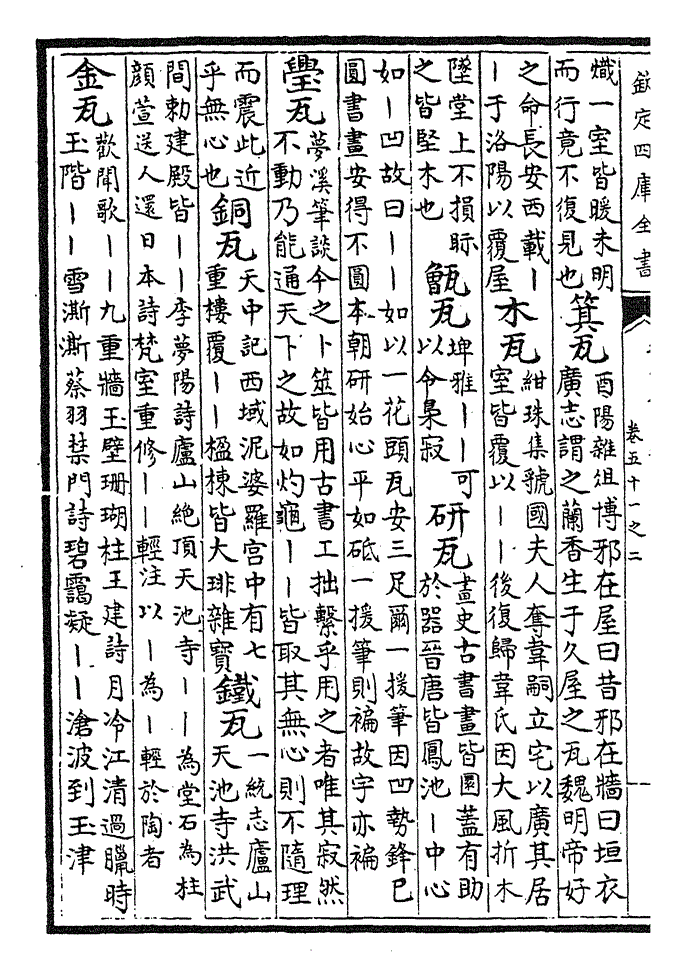 欽定四庫全書
卷五十一之二
熾一室皆暖未明
而行竟不復見也
箕瓦
酉陽雜俎博邪在屋曰昔邪在牆曰垣衣
廣志謂之蘭香生于久屋之瓦魏明帝好
之命長安西載丨
丨于洛陽以覆屋
木瓦
紺珠集虢國夫人奪韋嗣立宅以廣其居
室皆覆以丨丨後復歸韋氏因大風折木
墜堂上不損眎
之皆堅木也
甑瓦
埤雅丨丨可
以令梟寂
研瓦
畫史古書畫皆圜蓋有助
於器晉唐皆鳳池丨中心
如丨凹故曰丨丨如以一花頭瓦安三足爾一援筆因凹勢鋒已
圓書畫安得不圓本朝研始心平如砥一援筆則褊故字亦褊
璺瓦
夢溪筆談今之卜筮皆用古書工拙繫乎用之者唯其寂然
不動乃能通天下之故如灼龜丨丨皆取其無心則不隨理
而震此近
乎無心也
銅瓦
天中記西域泥婆羅宫中有七
重樓覆丨丨楹棟皆大琲雜寶
鐵瓦
一統志廬山
天池寺洪武
間勅建殿皆丨丨李夢陽詩廬山絶頂天池寺丨丨為堂石為柱
顔萱送人還日本詩梵室重修丨丨輕注以丨為丨輕於陶者
金瓦
歡聞歌丨丨九重牆玉壁珊瑚柱王建詩月冷江清過臘時
玉階丨丨雪澌澌蔡羽禁門詩碧靄凝丨丨滄波到玉津